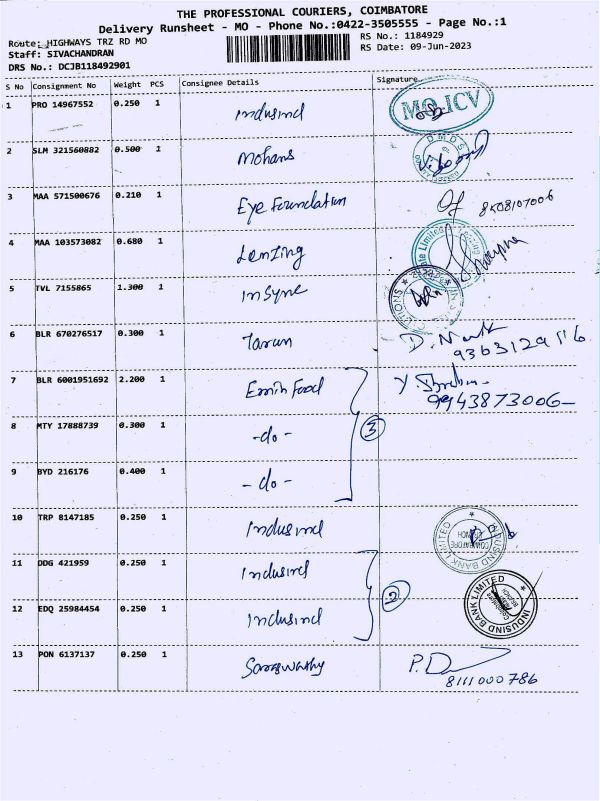 THE PROFESSIONAL COURIERS, COIMBATORE
Delivery Runsheet - MO - Phone No.:0422-3505555 - Page No.:1
Route: HIGHWAYS TRZ RD MO
RS No.: 1184929
Staff: SIVACHANDRAN
RS Date: 09-Jun-2023
DRS No.: DCJB118492901
S No Consignment No Weight PCS Consignee Details Signature
1 PRO 14967552 0.250 1 Indusind MO ICV
2 SLM 321560882 0.500 1 Mohans
3 MAA 571500676 0.210 1 Eye Foundation 8508107006
4 MAA 103573082 0.680 1 Lenzing
5 TVL 7155865 1.300 1 Insyne
6 BLR 670276517 0.300 1 Tarun
7 BLR 6001951692 2.200 1 Emin Food 9943873006
8 MTY 17888739 0.300 1 -do- 3
9 BYD 216176 0.400 1 -do-
10 TRP 8147185 0.250 1 Indusind INDUSIND BANK LIMITED COIMBATORE BRANCH
11 DDG 421959 0.250 1 Indusind
12 EDQ 25984454 0.250 1 Indusind 2 INDUSIND BANK LIMITED
13 PON 6137137 0.250 1 P.D
8111000786